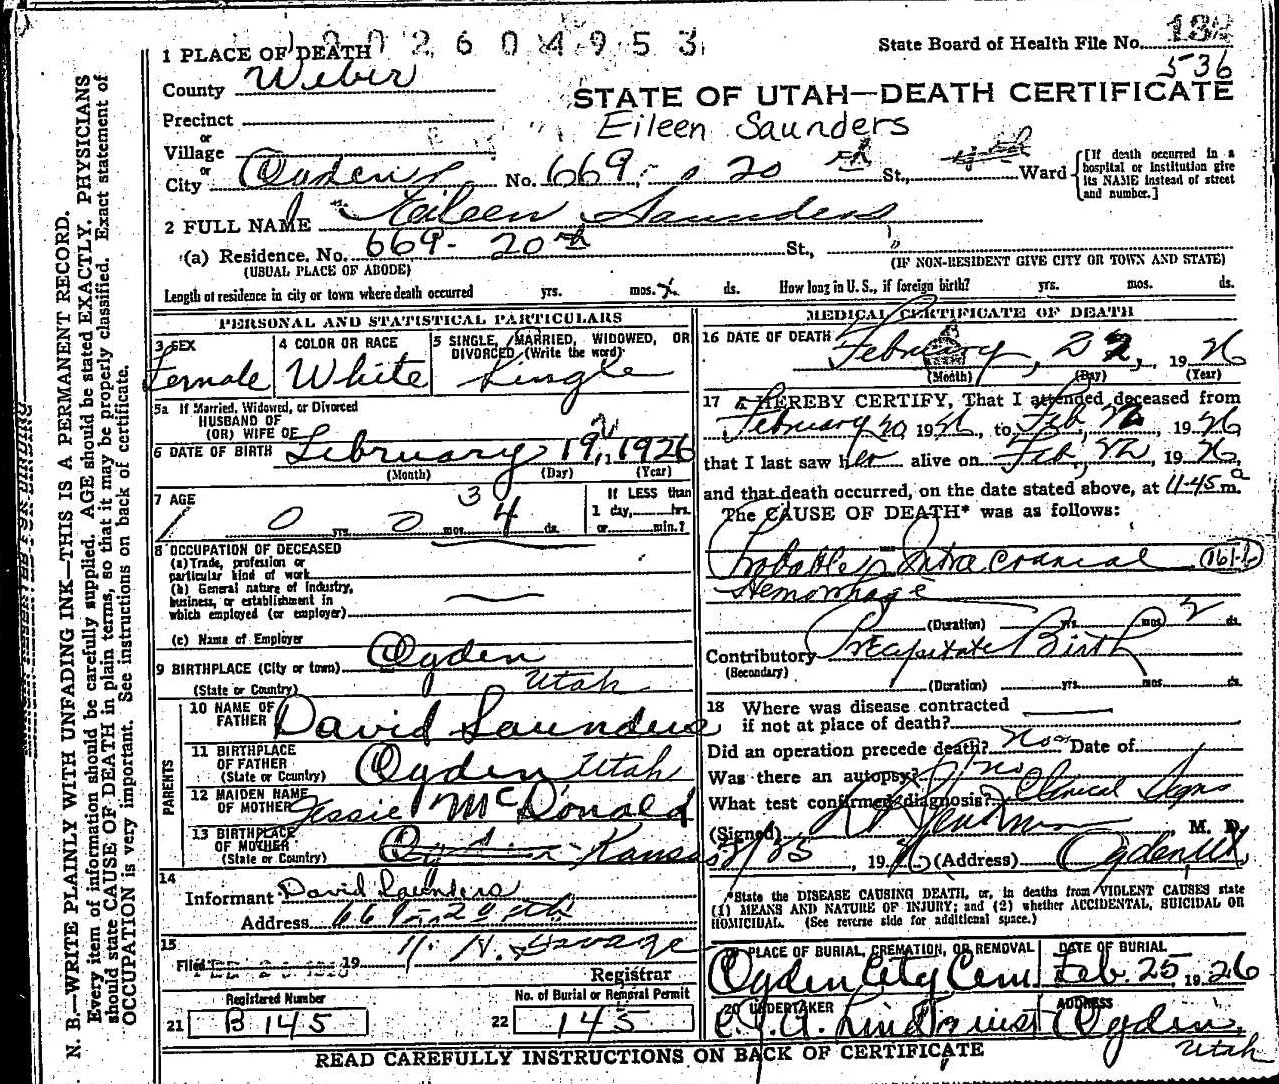 1 PLACE OF DEATH
2 6 0 4 9 5 3
State Board of Health File No.
County Weber
536
STATE OF UTAH—DEATH CERTIFICATE
Precinct
or
Village
Eileen Saunders
or
City Ogden No. 669 20 th St., Ward
[If death occurred in a hospital or institution give its NAME instead of street and number.]
2 FULL NAME Eileen Saunders
(a) Residence. No. 669 - 20th St.,
(USUAL PLACE OF ABODE)
(IF NON-RESIDENT GIVE CITY OR TOWN AND STATE)
Length of residence in city or town where death occurred yrs. mos. ds. How long in U. S., if foreign birth? yrs. mos. ds.
PERSONAL AND STATISTICAL PARTICULARS
3 SEX
Female
4 COLOR OR RACE
White
5 SINGLE, MARRIED, WIDOWED, OR DIVORCED (Write the word)
Single
5a If Married, Widowed, or Divorced
HUSBAND OF
(OR) WIFE OF
6 DATE OF BIRTH February 19, 1926
(Month) (Day) (Year)
7 AGE
0 yrs. 0 mos. 3 4 ds.
If LESS than
1 day, hrs.
or min.?
8 OCCUPATION OF DECEASED
(a) Trade, profession or
particular kind of work
(b) General nature of industry,
business, or establishment in
which employed (or employer)
(c) Name of Employer
9 BIRTHPLACE (City or town) Ogden
(State or Country) Utah
PARENTS
10 NAME OF FATHER David Saunders
11 BIRTHPLACE OF FATHER (State or Country) Ogden Utah
12 MAIDEN NAME OF MOTHER Jessie McDonald
13 BIRTHPLACE OF MOTHER (State or Country) Kansas
14
Informant David Saunders
Address 669 - 20 th
15
Filed 19
Savage
Registrar
Registered Number
21 B 145
No. of Burial or Removal Permit
22 145
MEDICAL CERTIFICATE OF DEATH
16 DATE OF DEATH February, 22, 1926
(Month) (Day) (Year)
17 I HEREBY CERTIFY, That I attended deceased from
February 20 1926, to Feb, 22, 1926,
that I last saw her alive on Feb, 22, 1926,
and that death occurred, on the date stated above, at 11-45 a m.
The CAUSE OF DEATH* was as follows:
Probable Intra cranial
161-b
Hemorrhage
(Duration) yrs. mos. 2 ds.
Contributory Precipitate Birth
(Secondary)
(Duration) yrs. mos. ds.
18 Where was disease contracted
if not at place of death?
Did an operation precede death? no Date of
Was there an autopsy? no
What test confirmed diagnosis? Clinical Signs
(Signed) M. D.
19 (Address) Ogden Ut.
*State the DISEASE CAUSING DEATH, or, in deaths from VIOLENT CAUSES state
(1) MEANS AND NATURE OF INJURY; and (2) whether ACCIDENTAL, SUICIDAL OR
HOMICIDAL. (See reverse side for additional space.)
PLACE OF BURIAL, CREMATION, OR REMOVAL
Ogden City Cem.
DATE OF BURIAL
Feb. 25, 1926
20 UNDERTAKER
Lindquist
ADDRESS
Ogden, Utah
READ CAREFULLY INSTRUCTIONS ON BACK OF CERTIFICATE
N. B.—WRITE PLAINLY WITH UNFADING INK—THIS IS A PERMANENT RECORD.
Every item of information should be carefully supplied. AGE should be stated EXACTLY. PHYSICIANS
should state CAUSE OF DEATH in plain terms, so that it may be properly classified. Exact statement of
OCCUPATION is very important. See instructions on back of certificate.